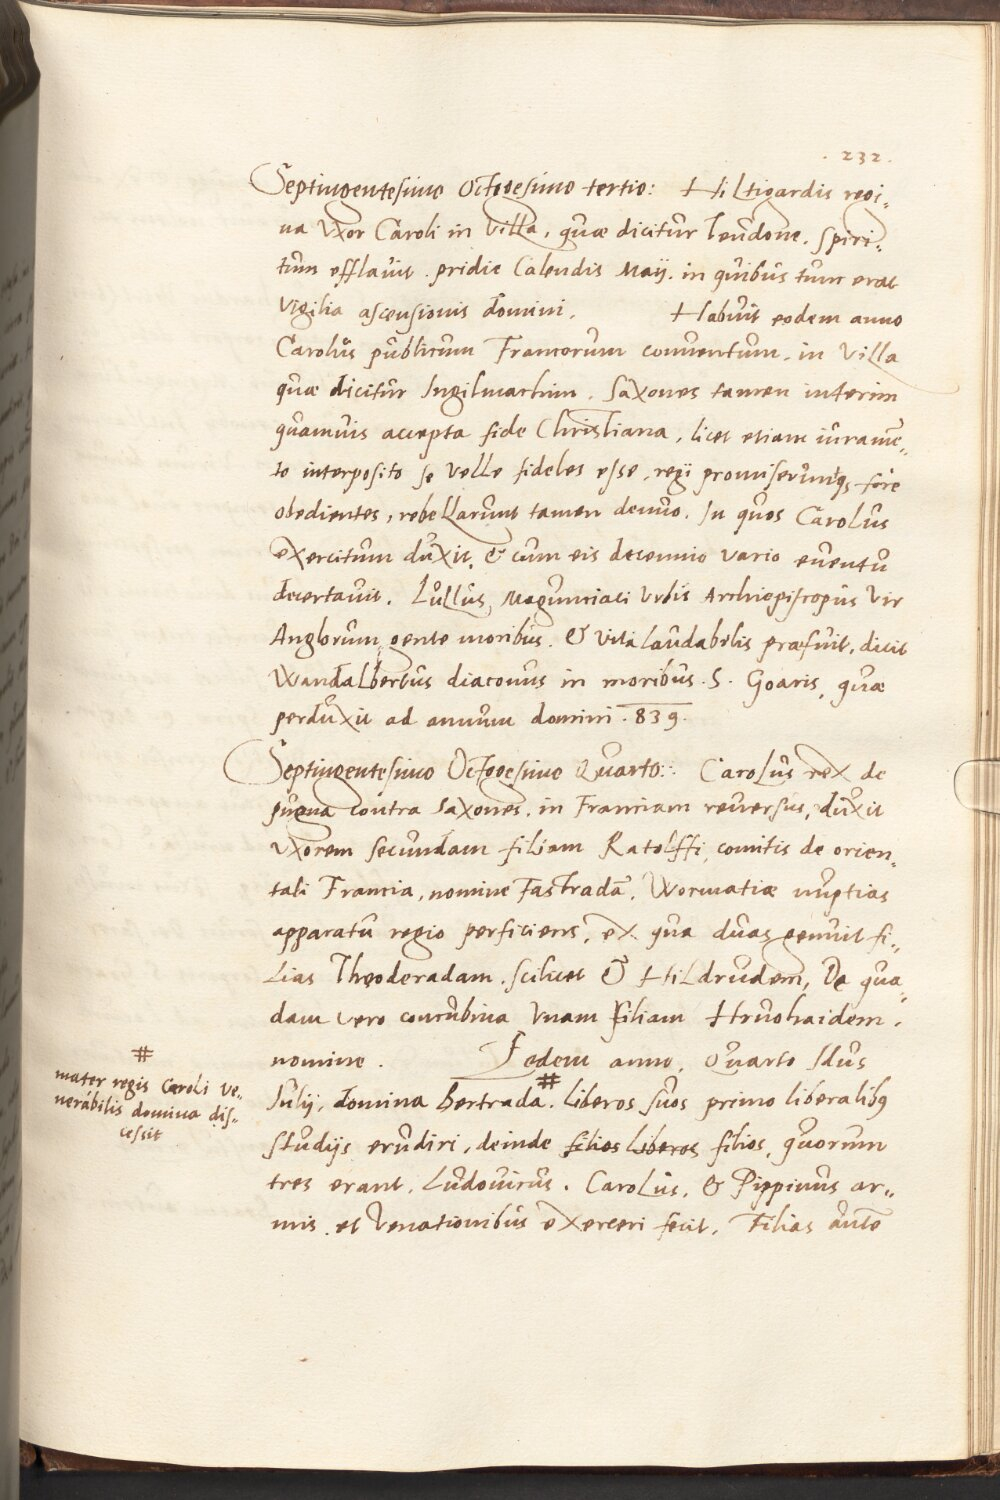 .232.
Septingentesimo Octogesimo tertio: Hiltigardis regi-
na Vxor Caroli in Villa, quæ dicitur Teudone, Spiri-
tum efflavit. pridie Calendis Maij. in quibus tum erat
Vigilia ascensionis domini. Habuit eodem anno
Carolus publicum Francorum conuentum. in Villa
quæ dicitur Ingilmachim. Saxones tamen interim
quamuis accepta fide Christiana, licet etiam iuramē-
to interposito se velle fideles esse, regi promiserintqȝ fore
obedientes, rebellarunt tamen denuo. In quos Carolus
exercitum duxit, & cum eis decennio vario euentu
decertauit. Lullus, Magunciaci Vrbis Archiepiscopus Vir
Anglorum gente moribus. & vita laudabilis præfuit, dicit
Wandalbertus diaconus in moribus. S. Goaris, quæ
perduxit ad annum domini. 839.
Septingentesimo Octogesimo Quarto: Carolus rex de
pugna contra Saxones. in Franciam reuersus, duxit
vxorem secundam filiam Ratolffi, comitis de orien-
tali Francia, nomine Fastradā. Wormatiæ nuptias
apparatu regio perficiens, ex qua duas genuit fi-
lias Theoderadam. scilicet & Hildrudem, De qua-
dam vero concubina vnam filiam Hruohaidem.
nomine. Eodem anno, Quarto Idus
Julij, domina Bertrada. # liberos suos primo liberalibꝫ
studijs erudiri, deinde filios liberos filios, quorum
tres erant, Ludouicus. Carolus, & Pippinus ar-
mis. et Venationibus exerceri fecit. Filias autē
#
mater regis Caroli ve-
nerabilis domina dis-
cessit